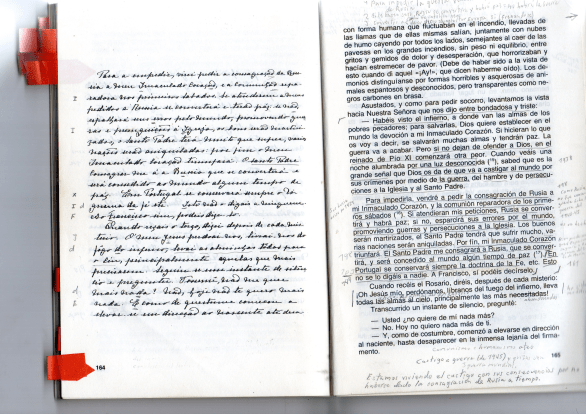 Para a empedir, virei pedir a consagração da Rus-
sia a meu Imaculado Coração, e a comunhão repa-
radora nos primeiros sabados. Se atenderem a meus
pedidos a Russia se converterá e terão paz, se não,
espalhará seus erros pelo mundo, promovendo guer-
ras e perseguições á Igreja, os bons serão martiri-
zados, o Santo Padre terá muito que sofrer, varias
nações serão aniquiladas: por fim o meu
Imaculado Coração triunfará. O Santo Padre
consagrar-me-á a Russia que se converterá e
será concedido ao mundo algum tempo de
paz. Em Portugal se conservará sempre o do-
guema da fé etc. Isto não o digais a ninguem.
Ao Francisco sim, podeis dize-lo.
Quando rezais o terço, dizei depois de cada mis-
terio: O meu Jesus perdoai-nos, livrai-nos do
fogo do inferno, levai as alminhas todas para
o Ceu, principalmente aquelas que mais
precisarem. Seguiu-se um instante de silen-
cio e preguntei:
mais nada? Não, hoje não te quero mais
nada. E como de costume começou a
elevar-se em direcção ao nascente até desa
164
con forma humana que fluctuaban en el incendio, llevadas de
las llamas que de ellas mismas salían, juntamente con nubes
de humo cayendo por todos los lados, semejantes al caer de las
pavesas en los grandes incendios, sin peso ni equilibrio, entre
gritos y gemidos de dolor y desesperación, que horrorizaban y
hacían estremecer de pavor. (Debe de haber sido a la vista de
esto cuando di aquel «¡Ay!», que dicen haberme oído). Los de-
monios distinguíanse por formas horribles y asquerosas de ani-
males espantosos y desconocidos, pero transparentes como ne-
gros carbones en brasa.
Asustados, y como para pedir socorro, levantamos la vista
hacia Nuestra Señora que nos dijo entre bondadosa y triste:
— Habéis visto el infierno, a donde van las almas de los
pobres pecadores; para salvarlas, Dios quiere establecer en el
mundo la devoción a mi Inmaculado Corazón. Si hicieran lo que
os voy a decir, se salvarán muchas almas y tendrán paz. La
guerra va a acabar. Pero si no dejan de ofender a Dios, en el
reinado de Pío XI comenzará otra peor. Cuando veáis una
noche alumbrada por una luz desconocida (¹⁴), sabed que es la
grande señal que Dios os da de que va a castigar al mundo por
sus crímenes por medio de la guerra, del hambre y de persecu-
ciones a la Iglesia y al Santo Padre.
Para impedirla, vendré a pedir la consagración de Rusia a
mi Inmaculado Corazón, y la comunión reparadora de los prime-
ros sábados
Si atendieran mis peticiones, Rusia se conver-
tirá y habrá paz; si no, esparcirá sus errores por el mundo,
promoviendo guerras y persecuciones a la Iglesia. Los buenos
serán martirizados, el Santo Padre tendrá que sufrir mucho, va-
rias naciones serán aniquiladas. Por fin, mi Inmaculado Corazón
triunfará. El Santo Padre me consagrará a Rusia, que se conver-
tirá, y será concedido al mundo algún tiempo de paz
En
Portugal se conservará siempre la doctrina de la Fe, etc. Esto
no se lo digáis a nadie. A Francisco, sí podéis decírselo.
Cuando recéis el Rosario, diréis, después de cada misterio:
¡Oh Jesús mío, perdónanos, líbranos del fuego del infierno, lleva
todas las almas al cielo, principalmente las más necesitadas!
Transcurrido un instante de silencio, pregunté:
— Usted ¿no quiere de mí nada más?
— No. Hoy no quiero nada más de ti.
— Y, como de costumbre, comenzó a elevarse en dirección
al naciente, hasta desaparecer en la inmensa lejanía del firma-
mento.
165
Estamos viviendo el castigo con sus consecuencias por no
haberse hecho la consagración de Rusia a tiempo.